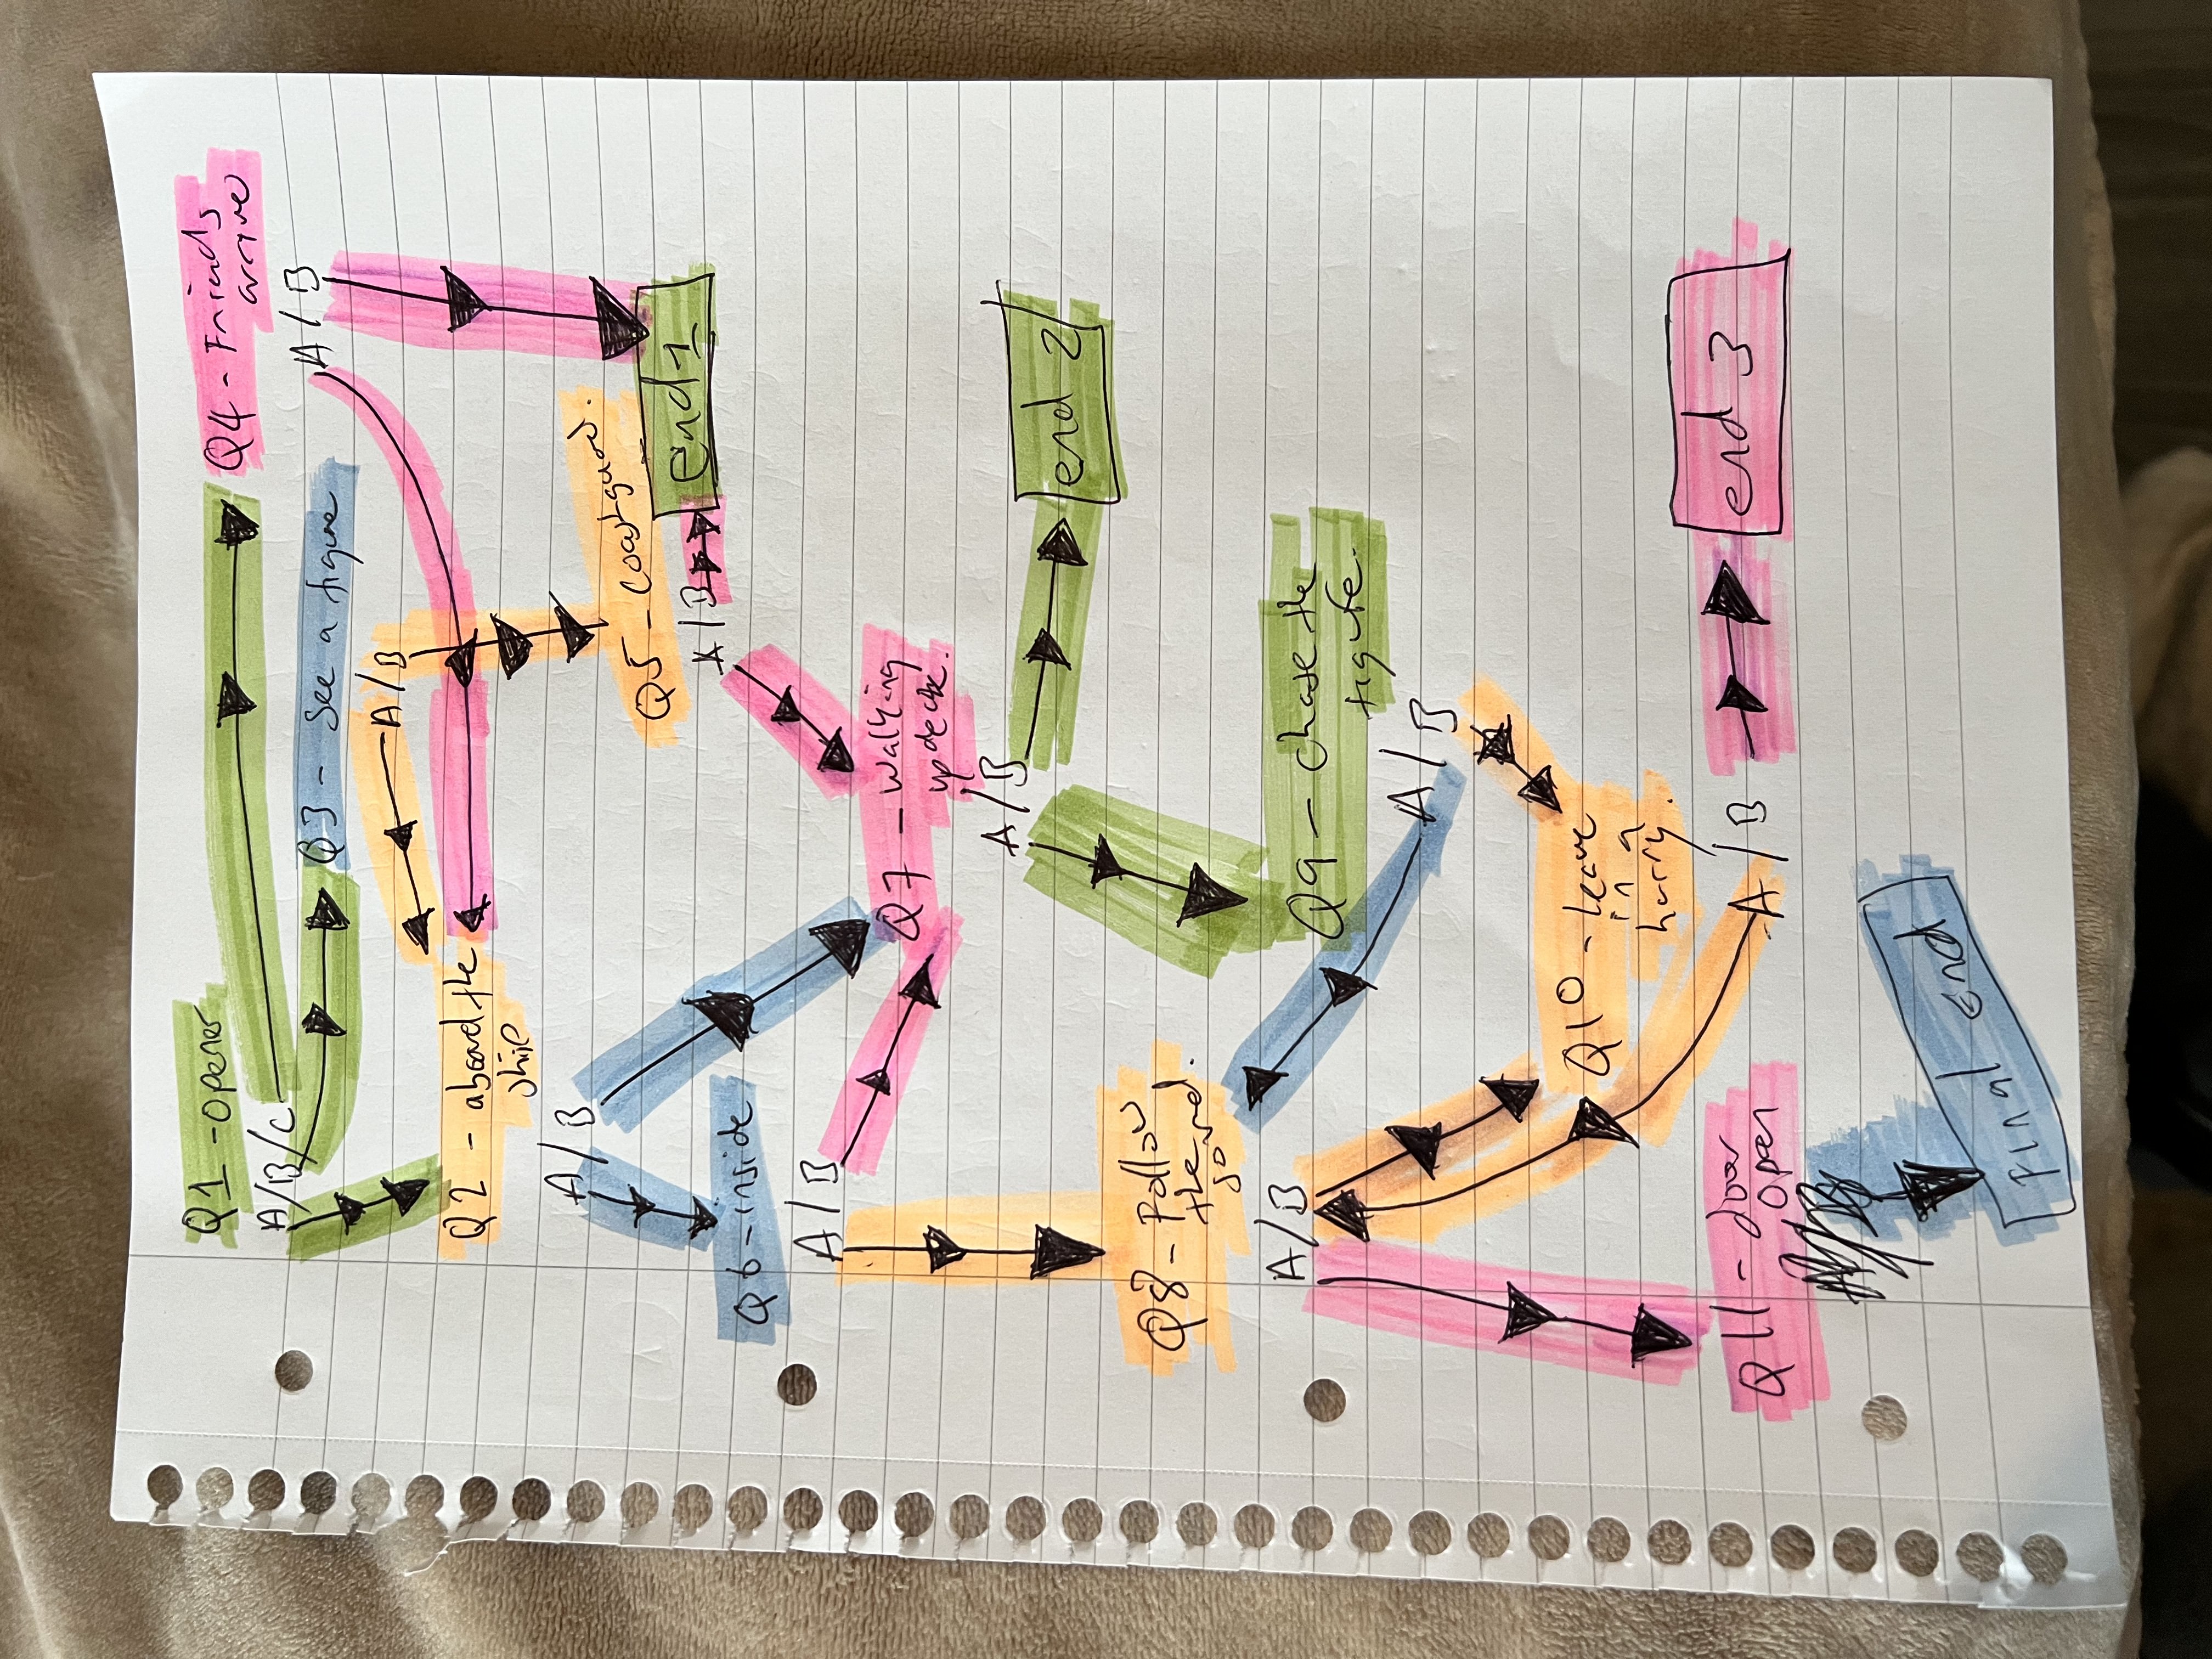 Q1 - opener
Q4 - Friends
arrive
A/B/C
A/B
Q3 - See a figure
A/B
Q2 - aboard the
ship
A/B
Q5 - Coastguard.
end 1
A/B
Q6 - inside
A/B
Q7 - Walking
up deck.
A/B
end 2
Q8 - Follow
the
sound.
A/B
Q9 - chase the
figure.
A/B
Q10 - leave
in a
hurry.
Q11 - door
open
A/B
end 3
A/B
Final End